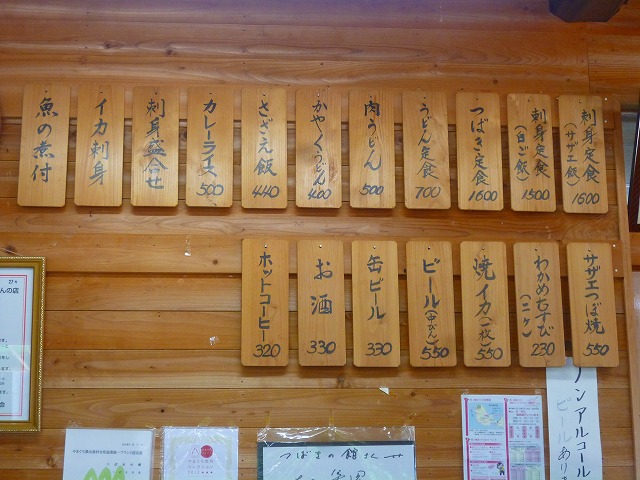 刺身定食
(サザエ飯)
1600
刺身定食
(白ご飯)
1500
つばき定食
1600
うどん定食
700
肉うどん
500
かやくうどん
400
さざえ飯
440
カレーライス
500
刺身盛合せ
イカ刺身
魚の煮付
サザエつぼ焼
550
わかめむすび
(二ケ)
230
焼イカ(一枚)
550
ビール(中びん)
550
缶ビール
330
お酒
330
ホットコーヒー
320
ノンアルコール
ビールあり
つばきの館さん
んの店